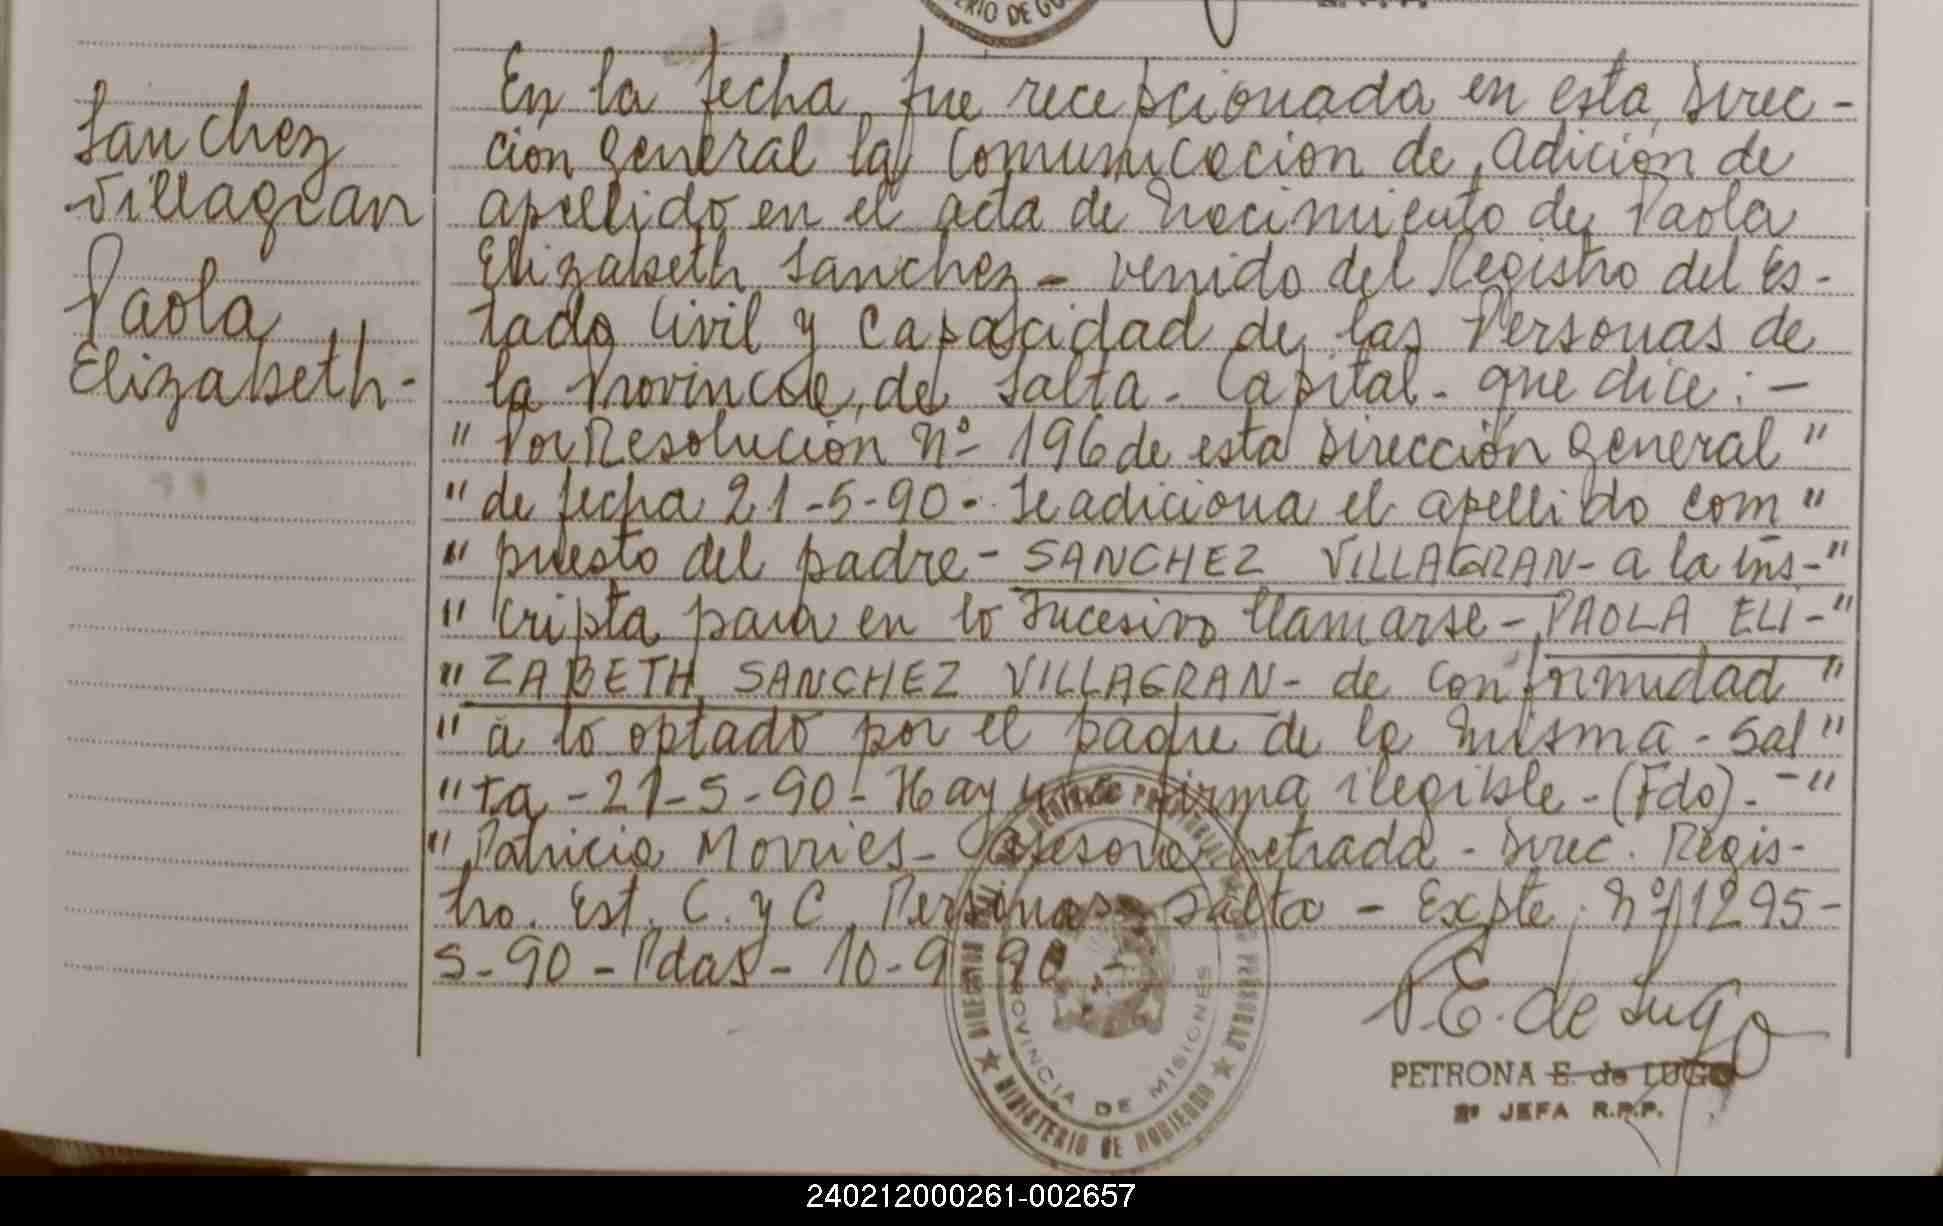 Sanchez
Villagran
Paola
Elizabeth-
En la fecha fue recepcionada en esta Direc-
cion general la comunicacion de adición de
apellido en el acta de nacimiento de Paola
Elizabeth Sanchez - venido del Registro del Es-
tado Civil y Capacidad de las Personas de
la Provincia de Salta - Capital - que dice: -
" Por Resolución Nº 196 de esta Dirección general "
" de fecha 21-5-90 - Se adiciona el apellido com "
" puesto del padre - SANCHEZ VILLAGRAN - a la ins-"
" cripta para en lo sucesivo llamarse - PAOLA ELI-"
" ZABETH SANCHEZ VILLAGRAN - de conformidad "
" a lo optado por el padre de la misma - Sal "
" ta - 21-5-90 - Hay una firma ilegible - (Fdo). - "
" Patricia Morries - Asesora Letrada - Direc. Regis-
tro. Est. C. y C. Personas Salta - Expte. Nº 11295-
S-90 - Pdas - 10-9-90 -
MINISTERIO DE GOBIERNO
PROVINCIA DE MISIONES
P. E. de Lugo
PETRONA E. de LUGO
2ª JEFA R.P.P.
240212000261-002657